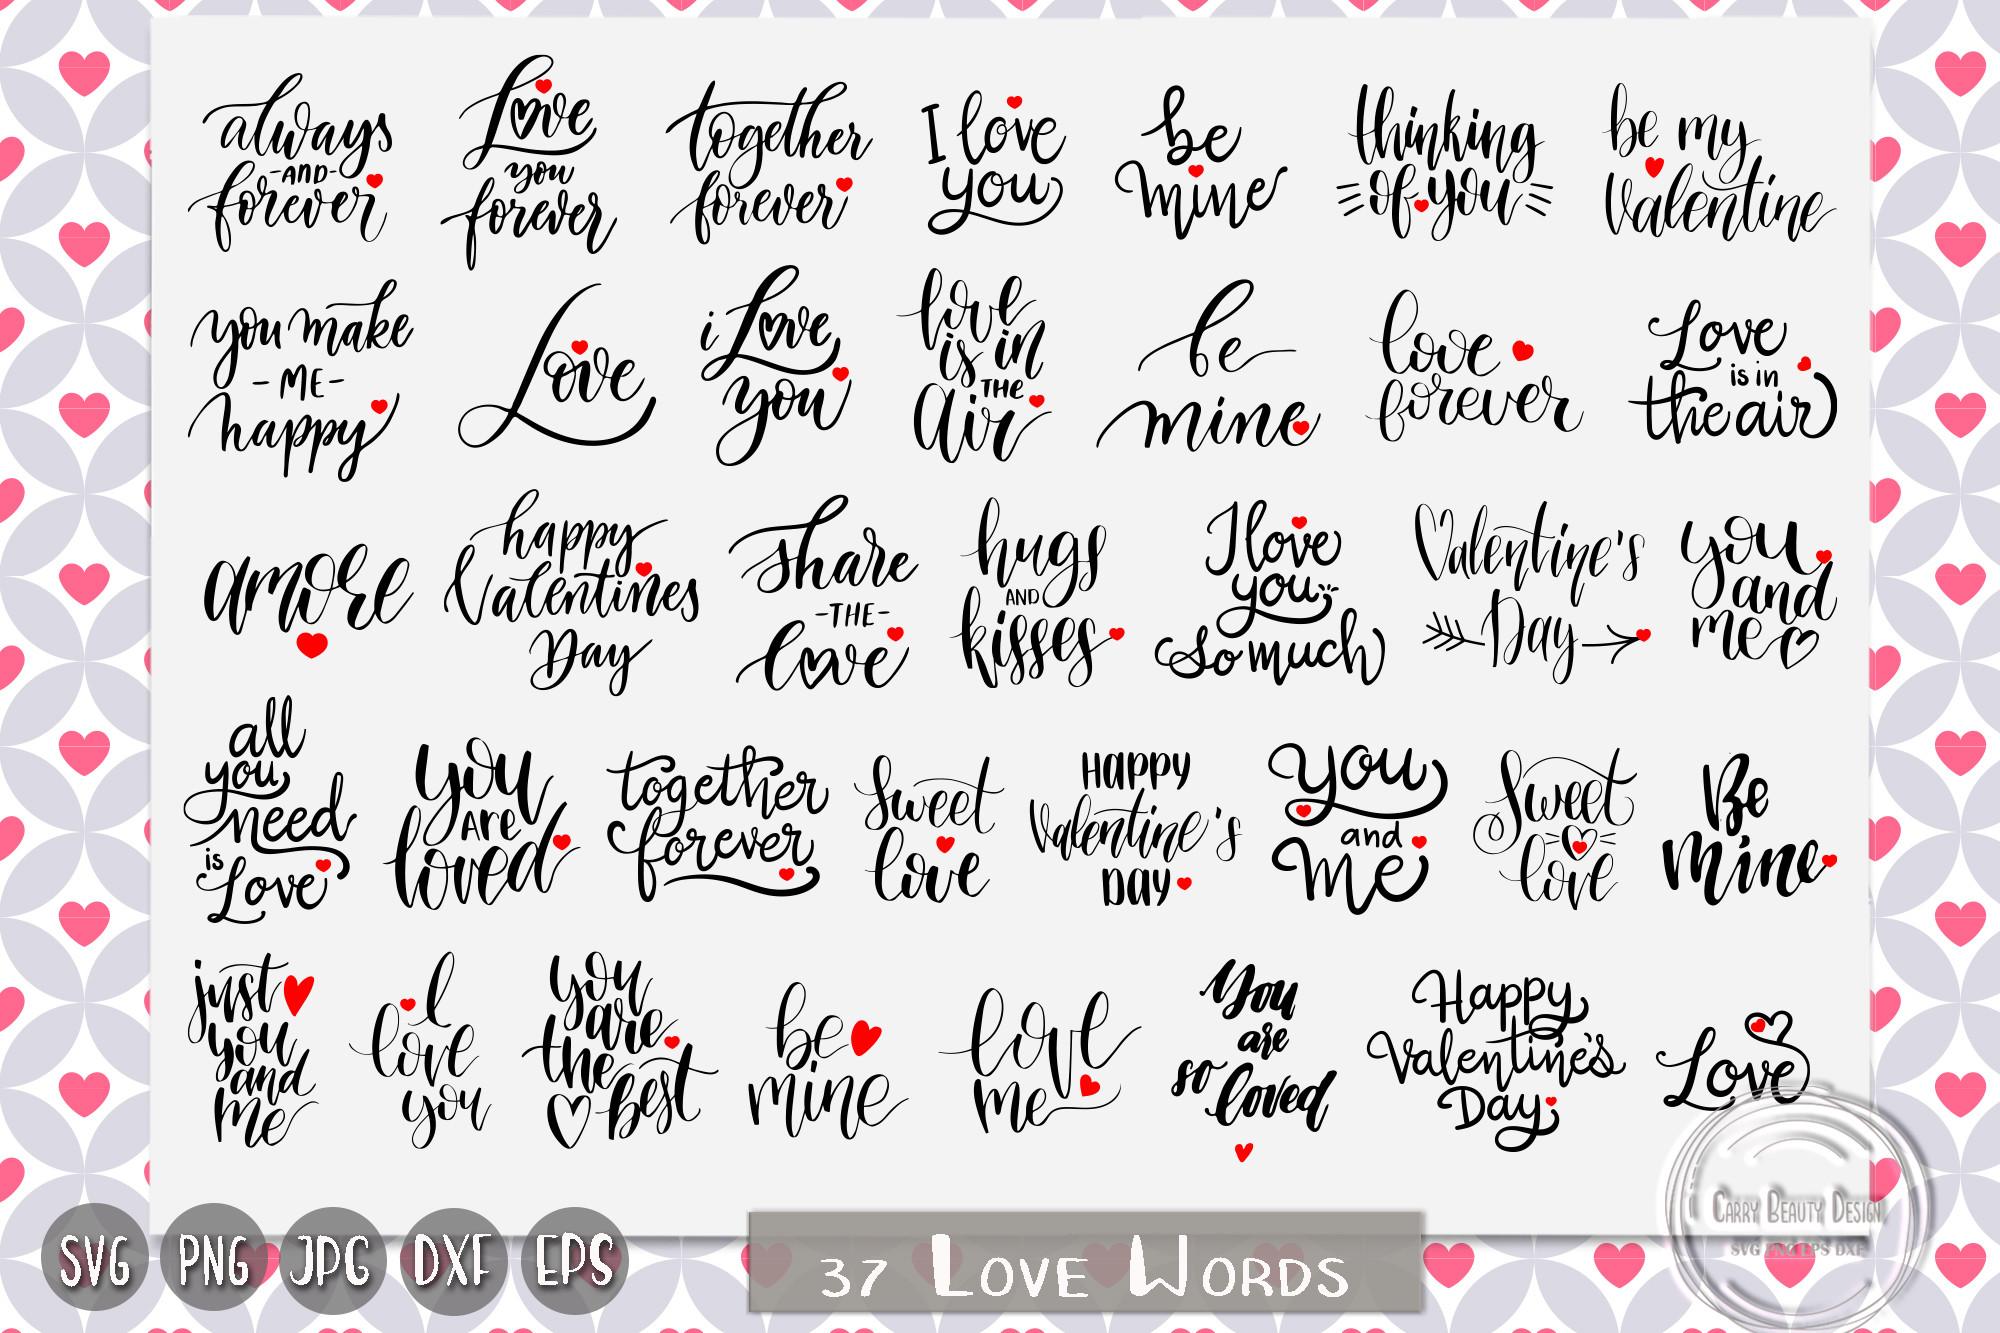 always
-AND-
forever
Love
you
forever
together
forever
I love
you
be
mine
thinking
of you
be my
Valentine
you make
-ME-
happy
Love
i Love
you
love
is in
THE
Air
be
mine
love
forever
Love
is in
the air
amore
happy
Valentines
Day
share
-THE-
love
hugs
AND
kisses
I love
you
so much
Valentine's
Day
you
and
me
all
you
need
is
Love
you
ARE
loved
together
forever
Sweet
love
HAPPY
Valentine's
DAY
you
and
Me
Sweet
love
Be
mine
just
you
and
me
I
love
you
you
are
the
best
be
mine
love
me
You
are
so loved
Happy
Valentine's
Day
Love
CARRY BEAUTY DESIGN
SVG PNG EPS DXF
SVG PNG JPG DXF EPS
37 LOVE WORDS